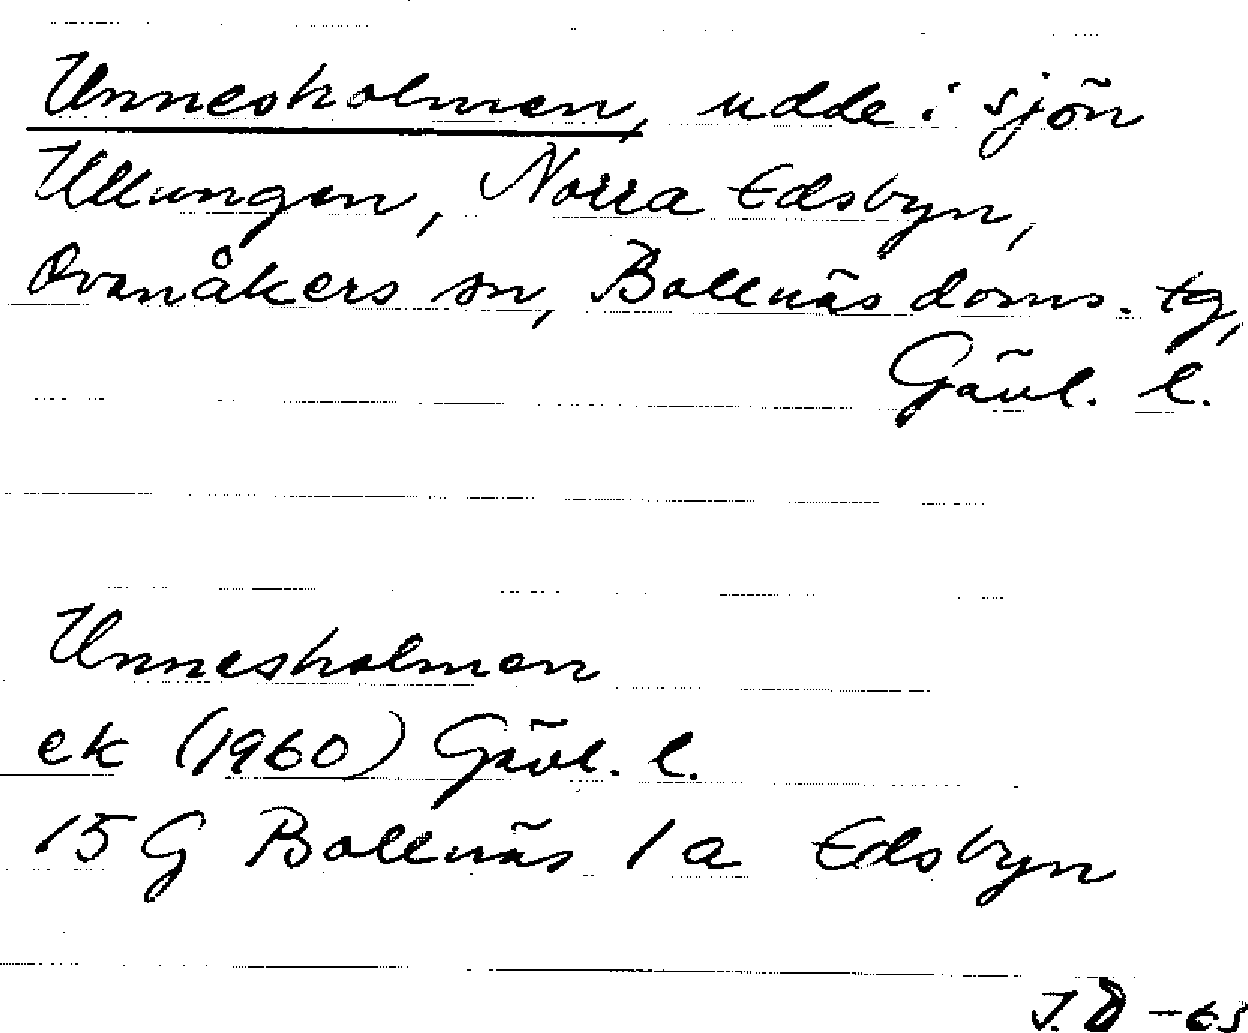 Unnesholmen, udde i sjön
Ullungen, Norra Edsbyn,
Ovanåkers sn, Bollnäs doms. tg,
Gävl. l.
Unnesholmen
ek (1960) Gävl. l.
15 G Bollnäs 1 a Edsbyn
J. D -63